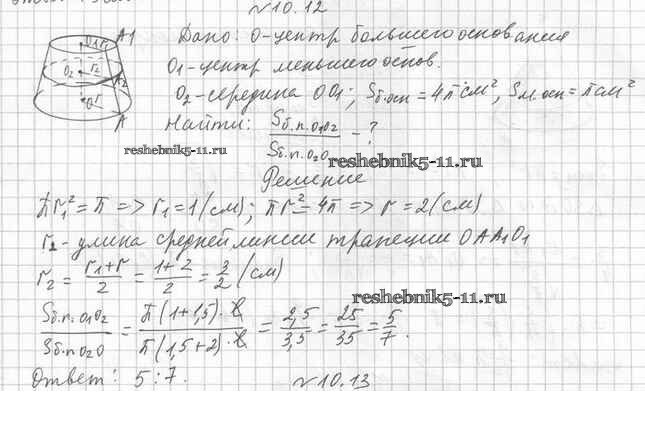 №10.12
Дано: O-центр большего основания
O1-центр меньшего основ.
O2-середина OO1; Sб.осн = 4π см², Sм.осн = π см²
Найти: Sб.п.O1O2 / Sб.п.O2O - ?
reshebnik5-11.ru
reshebnik5-11.ru
Решение
πr1² = π => r1 = 1 (см); πr² = 4π => r = 2 (см)
r2 - длина средней линии трапеции OAA1O1
r2 = (r1 + r)/2 = (1+2)/2 = 3/2 (см)
reshebnik5-11.ru
Sб.п.O1O2 / Sб.п.O2O = π(1+1,5)·ℓ / π(1,5+2)·ℓ = 2,5/3,5 = 25/35 = 5/7.
Ответ: 5:7.
№10.13
A1
O1 r1
O2 r2 A2
O r
A